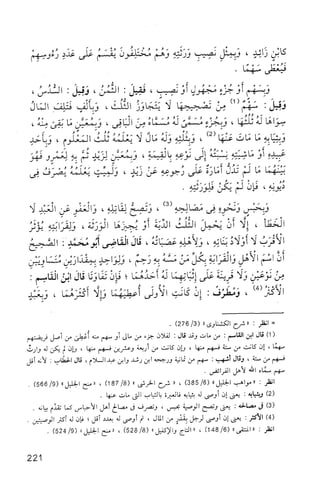 كَابْنٍ زَائِدٍ ، وَبِمِثْلِ نَصِيبِ وَرَثَتِهِ وَهُمْ مُخْتَلِفُونَ يُقْسَمُ عَلَى عَدَدِ رُءُوسِهِمْ
فَيُعْطَى سَهْمًا .
وَبِسَهْمٍ أَوْ جُزْءٍ مَجْهُولٍ أَوْ نَصِيبٍ ، فَقِيلَ : الثُّمُنُ ، وَقِيلَ : السُّدُسُ ،
وَقِيلَ : سَهْمٌ (1) مِنْ تَصْحِيحِهَا لَا يَتَجَاوَزُ الثُّلُثَ ، وَبِأَلْفٍ فَتَلِفَ الْمَالُ
سِوَاهَا لَهُ ثُلُثُهَا ، وَبِجُزْءٍ مُسَمًّى لَهُ مُسَمَّاهُ مِنَ الْبَاقِي ، وَبِمُعَيَّنٍ مَا بَقِيَ مِنْهُ ،
وَبِثِيَابِهِ مَا مَاتَ عَنْهَا (2) ، وَبِثُلُثِهِ وَلَهُ مَالٌ لَا يَعْلَمُهُ ثُلُثُ الْمَعْلُومِ ، وَبِأَحَدِ
عَبِيدِهِ أَوْ مَاشِيَتِهِ يَسْبَتُهُ إِلَى نَوْعِهِ بِالْقِيمَةِ ، وَبِمُعَيَّنٍ لِزَيْدٍ ثُمَّ بِهِ لِعَمْرٍو فَهُوَ
بَيْنَهُمَا مَا لَمْ تَدُلَّ أَمَارَةٌ عَلَى رُجُوعِهِ عَنْ زَيْدٍ ، وَلِمَيِّتٍ يَعْلَمُهُ يُصْرَفُ فِي
دُيُونِهِ ، فَإِنْ لَمْ يَكُنْ فَلِوَرَثَتِهِ .
وَبِحُبُسٍ وَنَحْوِهِ فِي مَصَالِحِهِ (3) ، وَتَصِحُّ لِقَاتِلِهِ ، وَالْعَفْوِ عَنِ الْعَبْدِ لَا
الْخَطَأ ، إِلَّا أَنْ يَحْمِلَ الثُّلُثُ الدِّيَةَ أَوْ يُجِيزَهَا الْوَرَثَةُ ، وَلِقَرَابَتِهِ يُؤْثَرُ
الْأَقْرَبُ لَا أَوْلَادُ بَنَاتِهِ ، وَلِأَهْلِهِ عَصَبَاتُهُ ، قَالَ الْقَاضِي أَبُو مُحَمَّدٍ : الصَّحِيحُ
أَنَّ اسْمَ الْأَهْلِ وَالْقَرَابَةِ بِكُلِّ مَنْ مَسَّهُ بِهِ رَحِمٌ ، وَلِوَاحِدٍ بِمِقْدَارَيْنِ مُتَسَاوِيَيْنِ
مِنْ نَوْعَيْنِ وَلَا قَرِينَةَ عَلَى إِثْبَاتِهِمَا لَهُ أَحَدُهُمَا ، فَإِنْ تَفَاوَتَا قَالَ ابْنُ الْقَاسِمِ :
الْأَكْثَرُ (4) ، وَمُطَرِّفٌ : إِنْ كَانَتِ الْأُولَى أَعْطَيْتُهَا وَإِلَّا أَكْثَرَهُمَا ، وَبِعَبْدٍ
= انظر : « شرح الكشناوي » (276/3) .
(1) قال ابن القاسم : من مات وقد قال : لفلان جزء من مالي أو سهم منه أُعطي من أصل فريضتهم
سهمًا ، إن كانت من ستة فسهم منها ، وإن كانت من أربعة وعشرين فسهم منها ، وإن لم يكن له وارث
فسهم من ستة ، وقال أشهب : سهم من ثمانية ورجحه ابن رشد وابن عبد السلام ، قال الحطّاب : لأنه أقل
سهم سمّاه الله لأهل الفرائض .
انظر : « مواهب الجليل » (385/6) ، « شرح الخرشي » (187/8) ، « منح الجليل » (566/9) .
(2) وبثيابه : يعني إن أوصى له بثيابه فالعبرة بالثياب التي مات عنها .
(3) في مصالحه : يعني وتصح الوصية بحبس ، وتصرف في مصالح أهل الأحباس كما تقدّم بيانه .
(4) الأكثر : يعني إن أوصى لرجل بقَدْرٍ من المال ، ثم أوصى له بعدد أقل ؛ فإن له أكثر الوصيتين .
انظر : « المنتقى » (148/6) ، « التاج والإكليل » (528/8) ، « منح الجليل » (524/9) .
221